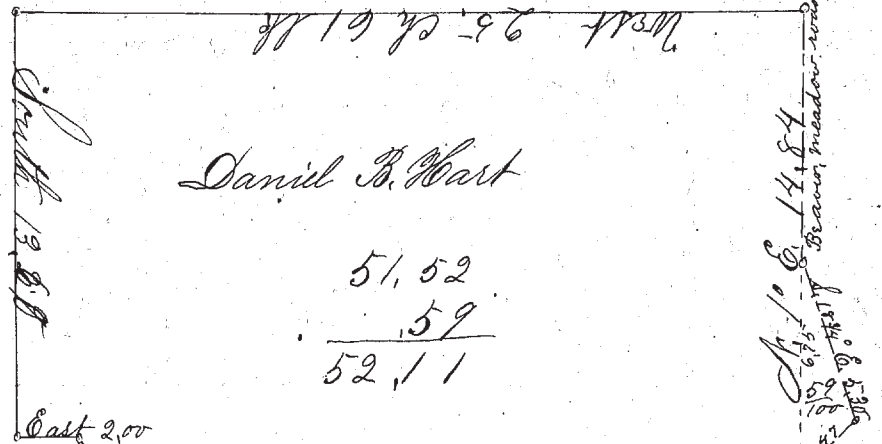 West 25, Ch, 61 lk
South 13,
Daniel B. Hart
51,52
,59
52,11
East 2,00
N. 1° E. 14,84
Beaver, meadow road
6,75
° E. 5,30
59
100